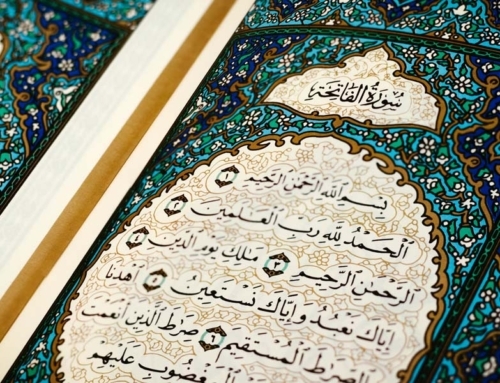 سُورَةُ الْفَاتِحَةِ
بِسْمِ اللَّهِ الرَّحْمَٰنِ الرَّحِيمِ ١
الْحَمْدُ لِلَّهِ رَبِّ الْعَٰلَمِينَ ٢
الرَّحْمَٰنِ الرَّحِيمِ ٣ مَٰلِكِ يَوْمِ الدِّينِ ٤
إِيَّاكَ نَعْبُدُ وَإِيَّاكَ نَسْتَعِينُ ٥ اهْدِنَا
الصِّرَٰطَ الْمُسْتَقِيمَ ٦ صِرَٰطَ الَّذِينَ أَنْعَمْتَ
الْمَغْضُوبِ عَلَيْهِمْ